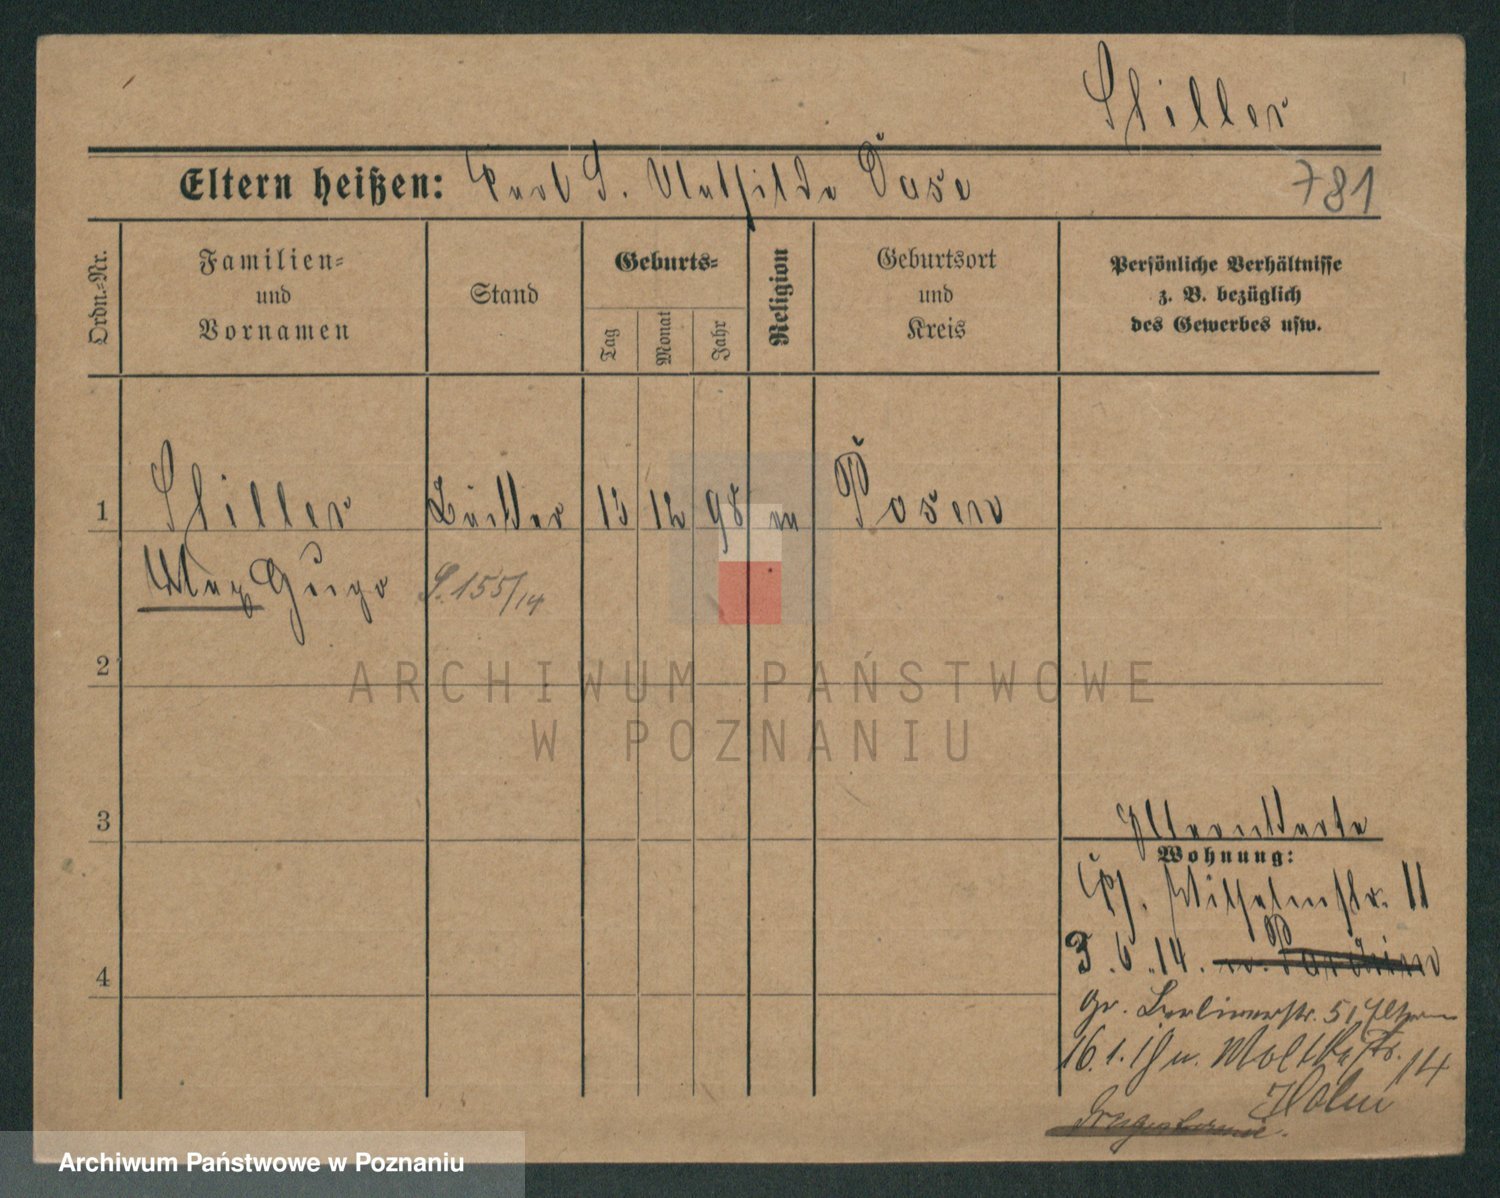 Stiller
Eltern heißen: Karl S. Mathilde Dase
781
Ordn.-Nr.
Familien-
und
Vornamen
Stand
Geburts-
Tag
Monat
Jahr
Religion
Geburtsort
und
Kreis
Persönliche Verhältnisse
z. B. bezüglich
des Gewerbes usw.
1
Stiller
13
12
98
m
Posen
Max Hugo
S. 155/14
2
ARCHIWUM PAŃSTWOWE
W POZNANIU
3
Elternkarte
Wohnung:
Wilhelmstr. 11
3.6.14.
gr. Berlinerstr. 51 Eltern
16.1.19 n. Moltkestr. 14
4
Archiwum Państwowe w Poznaniu